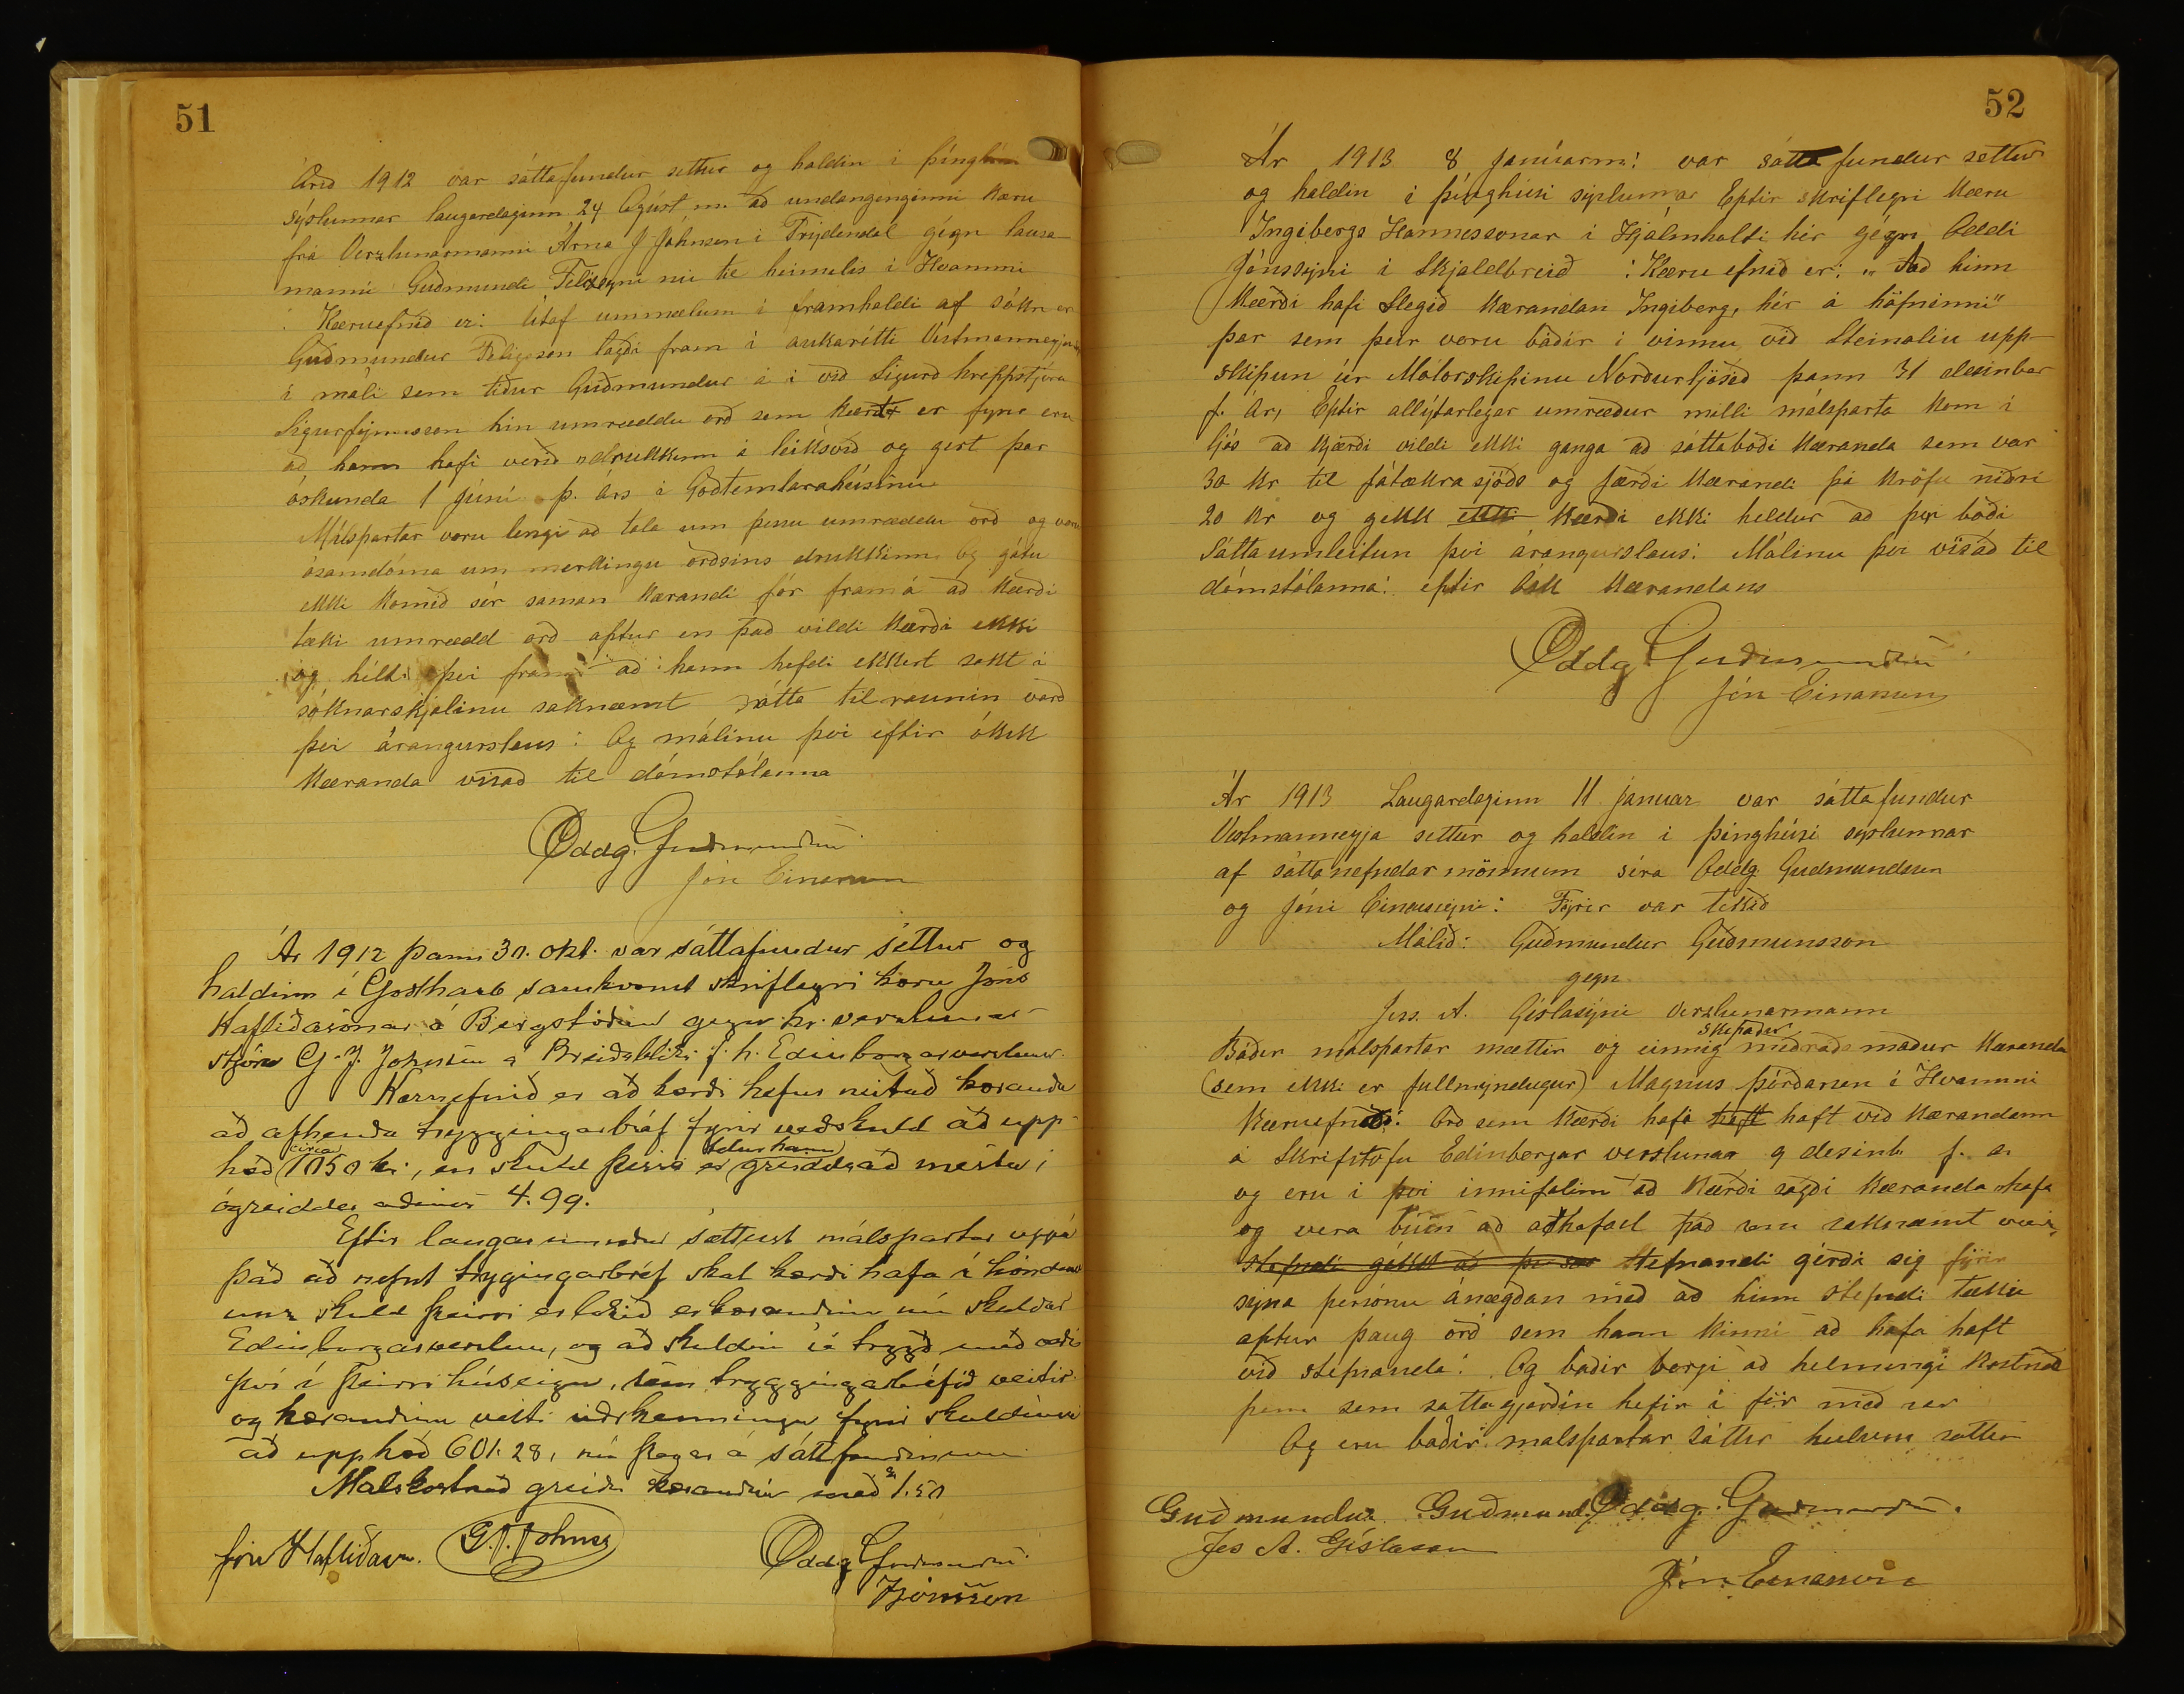 51
Árið 1912 var sáttafundur settur og haldin i þinghúsi
sýslunnar laugardaginn 24 Agúst m. að undangenginni Kæru
frá Verzlunarmanni Árna J Johnsen i Frýdendal gégn lausa
manni Guðmundi Felixsyni nú til heimilis i Hvammi
: Kæruefnið er: Útaf ummælum i framhaldi af sókn er
Guðmundur Felixson lagði fram i aukarétti Vestmanneyja
i máli sem tiður Guðmundur á i við Sigurð hreppstjóra
Sigurfinnsson hin umræddu orð sem Kært er fyrir eru
að hann hafi verið "drukkinn á leiksvið og gert þar
óskunda 1 júní þ. árs i Goðtemlarahúsinu
Málspartar voru lengi að tala um þessu umræddu orð og voru
ósamdóma um merkingu orðsins drukkinn Og gátu
ekki Komið sér saman Kærandi fór framá að Kærði
tæki umrædd orð aftur en það vildi Kærði ekki
og hélt því fram að hann hefdi ekkert sakt i
sóknarskjalinu saknæmt sátta tilraunin varð
þvi árangurslaus: Og málinu þvi eftir ósk
Kæranda visað til dómstólanna
Oddg. Guðmundsen
Jón Einarsson
Ár 1912 þann 30. okt. var sáttafundur settur og
haldinn í Godthaab samkvæmt skriflegri kæru Jóns
Hafliðasonar á Bergstöðum gegn hr. verslunar-
stjóra G. J. Johnsen á Breiðabliki f. h. Edinborgarverslunar.
Kæruefnið er að kærði hefur neitað kæranda
að afhenda tryggingarbréf fyrir veðskuld að upp-
hæð circa 1050 kr., en skuld þessi telur hann er greidd að mestu,
ógreiddar aðeins 4.99.
Eftir langar umræður sættust málspartar uppá
það að nefnt trygingarbréf skal kærði hafa í höndum
unz skuld þeirri er lokið er kærandinn nú skuldar
Edinborgarverslun, og að skuldin sé trygð með veði
því í þeirri húseign, sem tryggingarbréfið veitir
og kærandinn veitti viðrkenningu fyrir skuldinni
að upphæð 601.28, nú þegar á sáttafundinum.
Málskostnað greiðir kærandinn með kr 1.50
Jón Hafliðason. G. J. Johnsen
Oddg Guðmundsen
JJónsson
52
Ár 1913 8 janúarm: var sáttafundur settur
og haldin i þinghúsi sýslunnar Eptir skriflegri Kæru
Ingibergs Hannessonar i Hjálmholti hér gégn Oddi
Jónssyni i Skjaldbreið : Kæru efnið er: „ Að hinn
Kærði hafi slegið Kærandan Ingiberg, hér á höfninni"
þar sem þeir voru báðir i vinnu við Steinoliu upp-
skipun úr Mótorskipinu Norðurljósið þann 31 desinber
f. ár, Eptir allýtarlegar umræður milli málsparta Kom i
ljós að Kjærði vildi ekki ganga að sáttaboði Kæranda sem var
30 Kr til fátækra sjóðs og færði Kærandi þá Kröfu niðri
20 Kr og gekk ekki Kærði ekki heldur að því boði
Sáttaumleitun þvi árangurslaus: Málinu þvi visað til
dómstólanna: eftir ósk Kærandans
Oddg Guðmundsen
Jón Einarsson
Ár 1913 Laugardaginn 11 januar var sáttafundur
Vestmanneyja settur og haldin i þinghúsi sýslunnar
af sáttanefndar mönnum séra Oddg. Gudmundsen
og Jóni Einarssyni: Fyrir var tekið
Málið: Guðmundur Guðmunsson
gegn
Jess. A. Gislasýni verzlunarmann
Báðir málspartar mættir og einnig skipaður meðráðamaður Kæranda
(sem ekki er fullmyndugur) Magnús Þórðarson i Hvammi
Kæruefnið: Orð sem Kærði hafi haft haft við Kærandann
á Skrifstofu Edinborgar verslunar 9 desinb f. á.
og eru i þvi innifalin að Kærði sagði Kæranda hafa
og vera búin að aðhafast það sem saknæmt væri,
stefndi gékk að þvi sem Stefnandi gérði sig fyrir
sýna persónu ánægðan með að hinn stefndi tæki
aptur þaug orð sem hann kinni að hafa haft
við stefnanda: Og báðir borgi að helmingi Kostnað
þann sem sattagjørðin hefir i för með sér
Og eru báðir malspartar sáttir heilum sáttum
Guðmundur Guðmunds. Oddg. Guðmundsen.
Jes A. Gíslason
Jón Einarsson